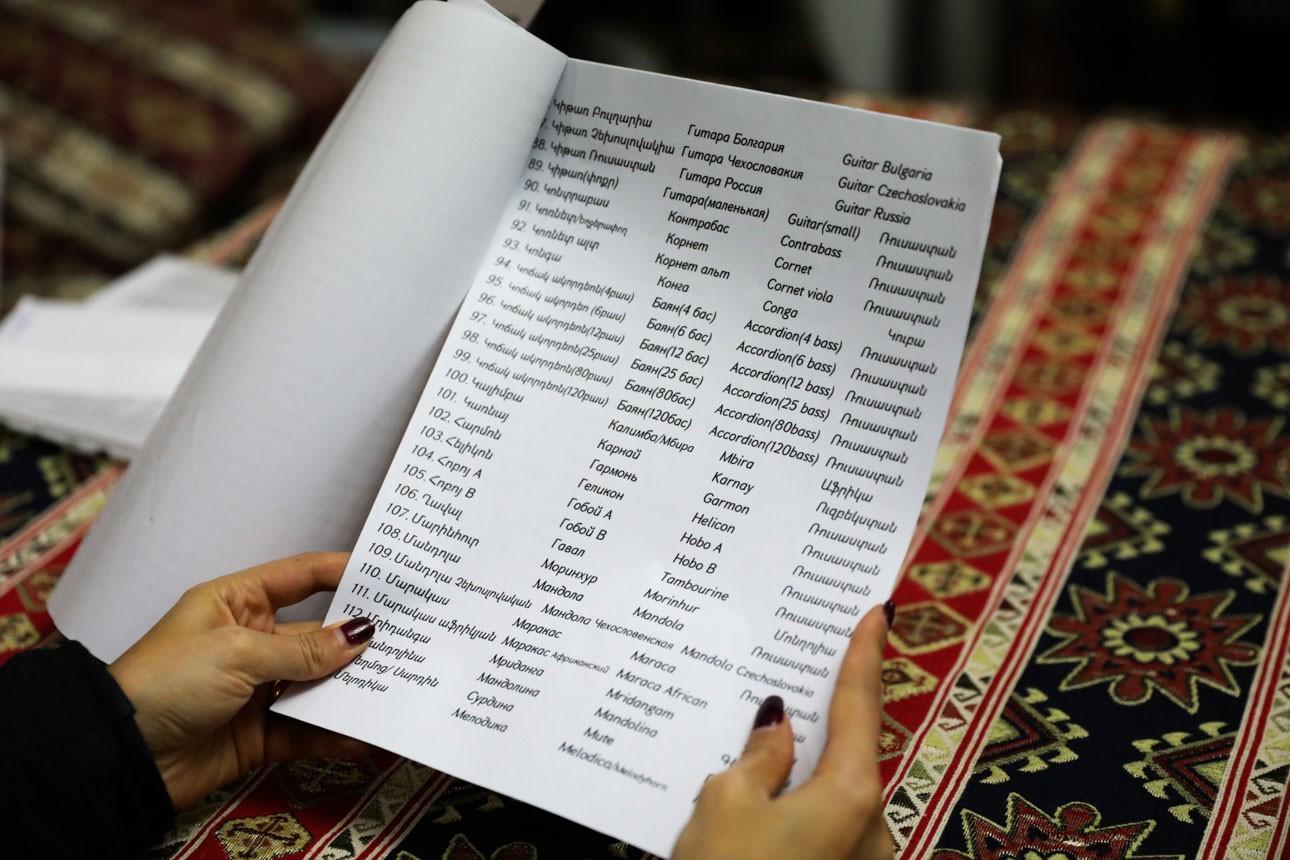 Կիթառ Բուլղարիա Гитара Болгария Guitar Bulgaria
7. Կիթառ Չեխոսլովակիա Гитара Чехословакия Guitar Czechoslovakia
88. Կիթառ Ռուսաստան Гитара Россия Guitar Russia
89. Կիթառ(փոքր) Гитара(маленькая) Guitar(small) Ռուսաստան
90. Կոնտրաբաս Контрабас Contrabass Ռուսաստան
91. Կոռնետ/եղջերափող Корнет Cornet Ռուսաստան
92. Կոռնետ ալտ Корнет альт Cornet viola Ռուսաստան
93. Կոնգա Конга Conga Կուբա
94. Կոճակ ակորդեոն(4բաս) Баян(4 бас) Accordion(4 bass) Ռուսաստան
95. Կոճակ ակորդեոն (6բաս) Баян(6 бас) Accordion(6 bass) Ռուսաստան
96. Կոճակ ակորդեոն(12բաս) Баян(12 бас) Accordion(12 bass) Ռուսաստան
97. Կոճակ ակորդեոն(25բաս) Баян(25 бас) Accordion(25 bass) Ռուսաստան
98. Կոճակ ակորդեոն(80բաս) Баян(80бас) Accordion(80bass) Ռուսաստան
99. Կոճակ ակորդեոն(120բաս) Баян(120бас) Accordion(120bass) Ռուսաստան
100. Կալիմբա Калимба/Мбира Mbira Աֆրիկա
101. Կառնայ Карнай Karnay Ուզբեկստան
102. Հարմոն Гармонь Garmon Ռուսաստան
103. Հելիկոն Геликон Helicon Ռուսաստան
104. Հոբոյ A Гобой A Hobo A Ռուսաստան
105. Հոբոյ B Гобой B Hobo B Ռուսաստան
106. Ղավալ Гавал Tambourine Ռուսաստան
107. Մորինխուր Моринхур Morinhur Մոնղոլիա
108. Մանդոլա Мандола Mandola Ռուսաստան
109. Մանդոլա Չեխոսլովական Мандола Чехословенская Mandola Czechoslovakia
110. Մարակաս Маракас Maraca
111. Մարակաս աֆրիկյան Маракас Африканский Maraca African
112 Մրիդանգա Мриданга Mridangam
Мандолина Mandolina
Сурдина Mute
Մելոդիկա Мелодика Melodica/Melodyhorn